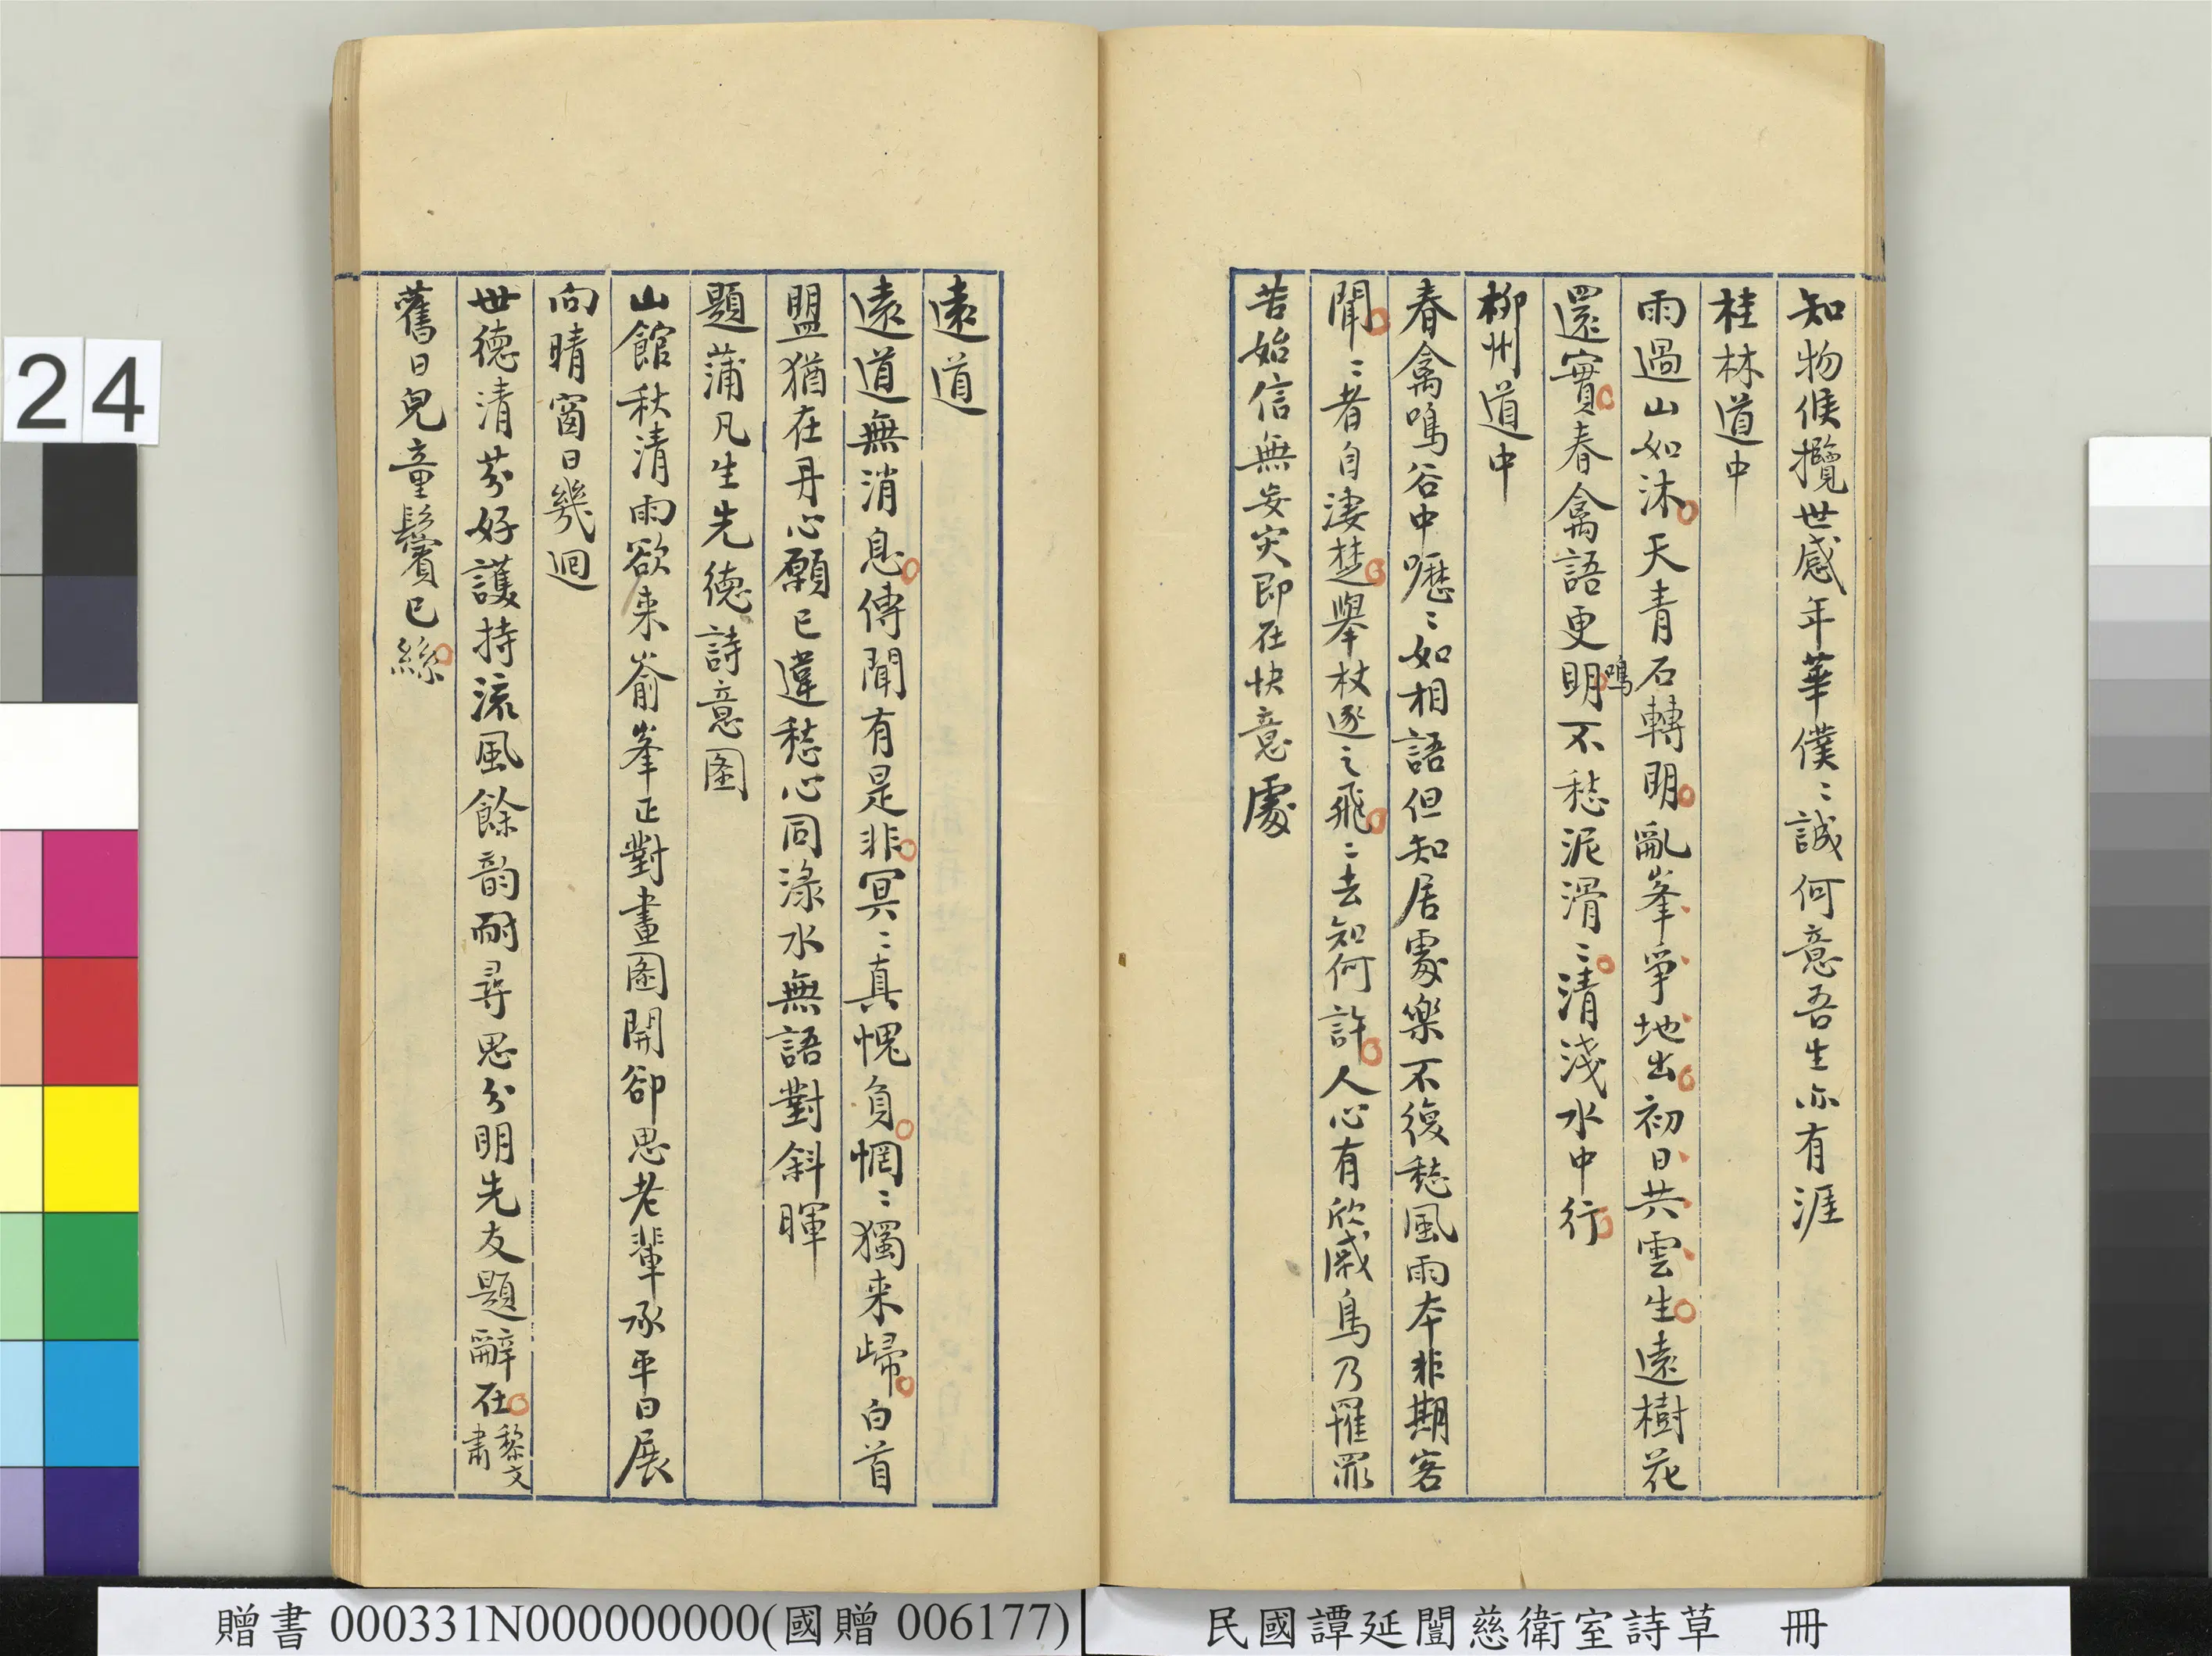 知物候攬世感年華僕〻誠何意吾生亦有涯
桂林道中
雨過山如沐天青石轉明亂峯爭地出初日共雲生遠樹花
還實春禽語更明不愁泥滑〻清淺水中行
鳴
柳州道中
春禽鳴谷中嚦〻如相語但知居處樂不復愁風雨本非期客
聞〻者自淒楚舉杖逐之飛〻去知何許人心有欣戚鳥乃罹罪
苦始信無妄灾即在快意處
遠道
遠道無消息傳聞有是非冥〻真愧負惘〻獨来歸白首
盟猶在丹心願已違愁心同淥水無語對斜暉
題蒲凡生先德詩意圖
山館秋清雨欲来嵛峯正對畫圖開卻思老輩承平日展
向晴窗日幾迴
世德清芬好護持流風餘韵耐尋思分明先友題辭在黎文肅
舊日兒童鬢已絲
24
贈書 000331N000000000(國贈 006177)
民國譚延闓慈衛室詩草 冊